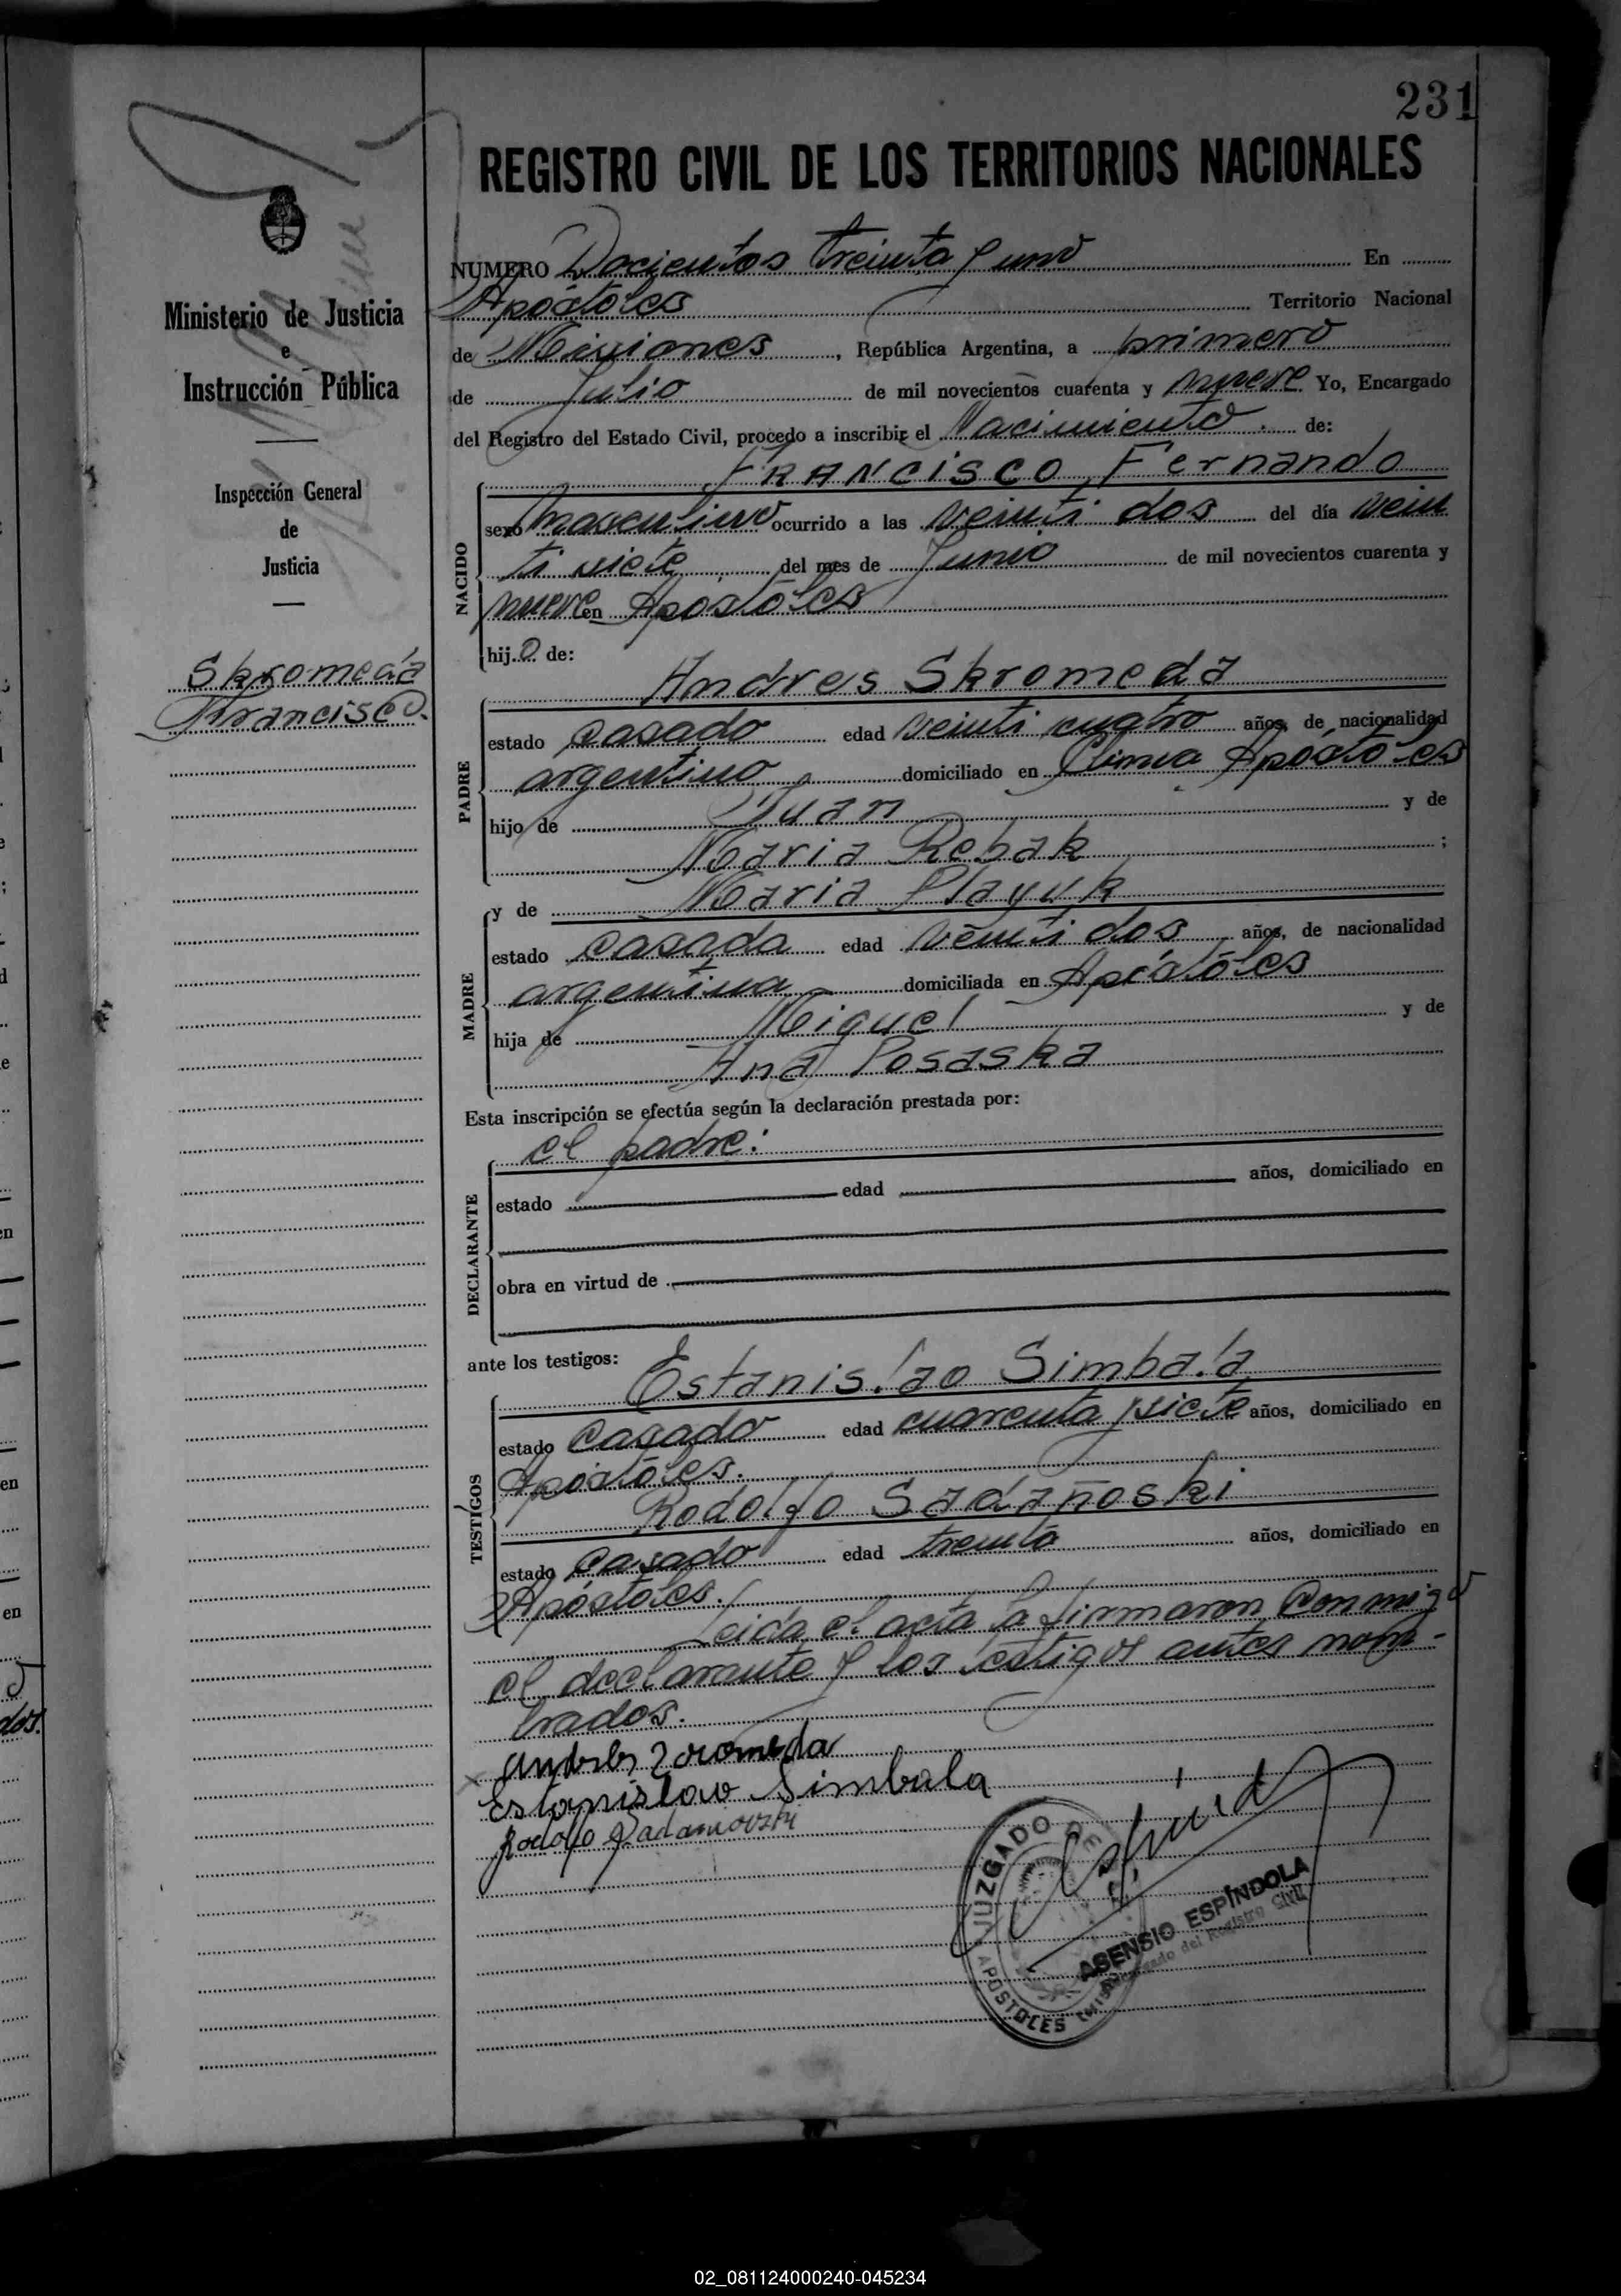 231
REGISTRO CIVIL DE LOS TERRITORIOS NACIONALES
Ministerio de Justicia
e
Instrucción Pública
Inspección General
de
Justicia
Skromeda
Francisco.
NUMERO Docientos treinta y uno En
Apóstoles Territorio Nacional
de Misiones, República Argentina, a primero
de Julio de mil novecientos cuarenta y nueve Yo, Encargado
del Registro del Estado Civil, procedo a inscribir el Nacimiento. de:
FRANCISCO Fernando
NACIDO
sexo masculino ocurrido a las veinti dos del día vein
ti siete del mes de Junio de mil novecientos cuarenta y
nueve en Apóstoles
hij.o de:
Andres Skromeda
PADRE
estado casado edad veinti cuatro años, de nacionalidad
argentino domiciliado en Apóstoles
hijo de Juan y de
Maria Rebak ;
y de Maria Playuk
MADRE
estado casada edad veinti dos años, de nacionalidad
argentina domiciliada en Apóstoles
hija de Miguel y de
Ana Posaska
Esta inscripción se efectúa según la declaración prestada por:
el padre:
DECLARANTE
estado edad años, domiciliado en
obra en virtud de
ante los testigos:
Estanislao Simbala
TESTIGOS
estado Casado edad cuarenta y siete años, domiciliado en
Apóstoles.
Rodolfo Sadañoski
estado Casado edad treinta años, domiciliado en
Apóstoles. Leida el acta la firmaron Conmigo
el declarante y los testigos antes nom-
brados.
Estanislao Simbala
Rodolfo
JUZGADO DE
APOSTOLES
ASENSIO ESPÍNDOLA
Encargado del Registro Civil
02_081124000240-045234